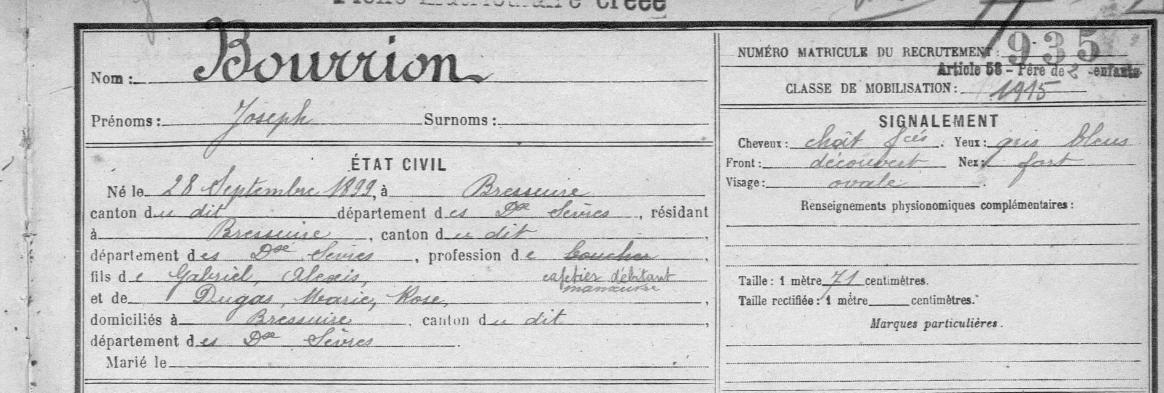 Fiche matriculaire créée
Nom : Bourrion
Prénoms : Joseph Surnoms :
ÉTAT CIVIL
Né le 28 Septembre 1899, à Bressuire
canton du dit département des Dx Sèvres, résidant
à Bressuire, canton du dit
département des Dx Sèvres, profession de boucher
cafetier débitant
manœuvre
fils de Gabriel, Alexis
et de Dugas, Marie, Rose,
domiciliés à Bressuire, canton du dit
département des Dx Sèvres.
Marié le
NUMÉRO MATRICULE DU RECRUTEMENT : 935
Article 58 - Père de 2 enfants
CLASSE DE MOBILISATION : 1915
SIGNALEMENT
Cheveux : chât fcés Yeux : gris bleus
Front : découvert Nez : fort
Visage : ovale
Renseignements physionomiques complémentaires :
Taille : 1 mètre 71 centimètres.
Taille rectifiée : 1 mètre centimètres.
Marques particulières.